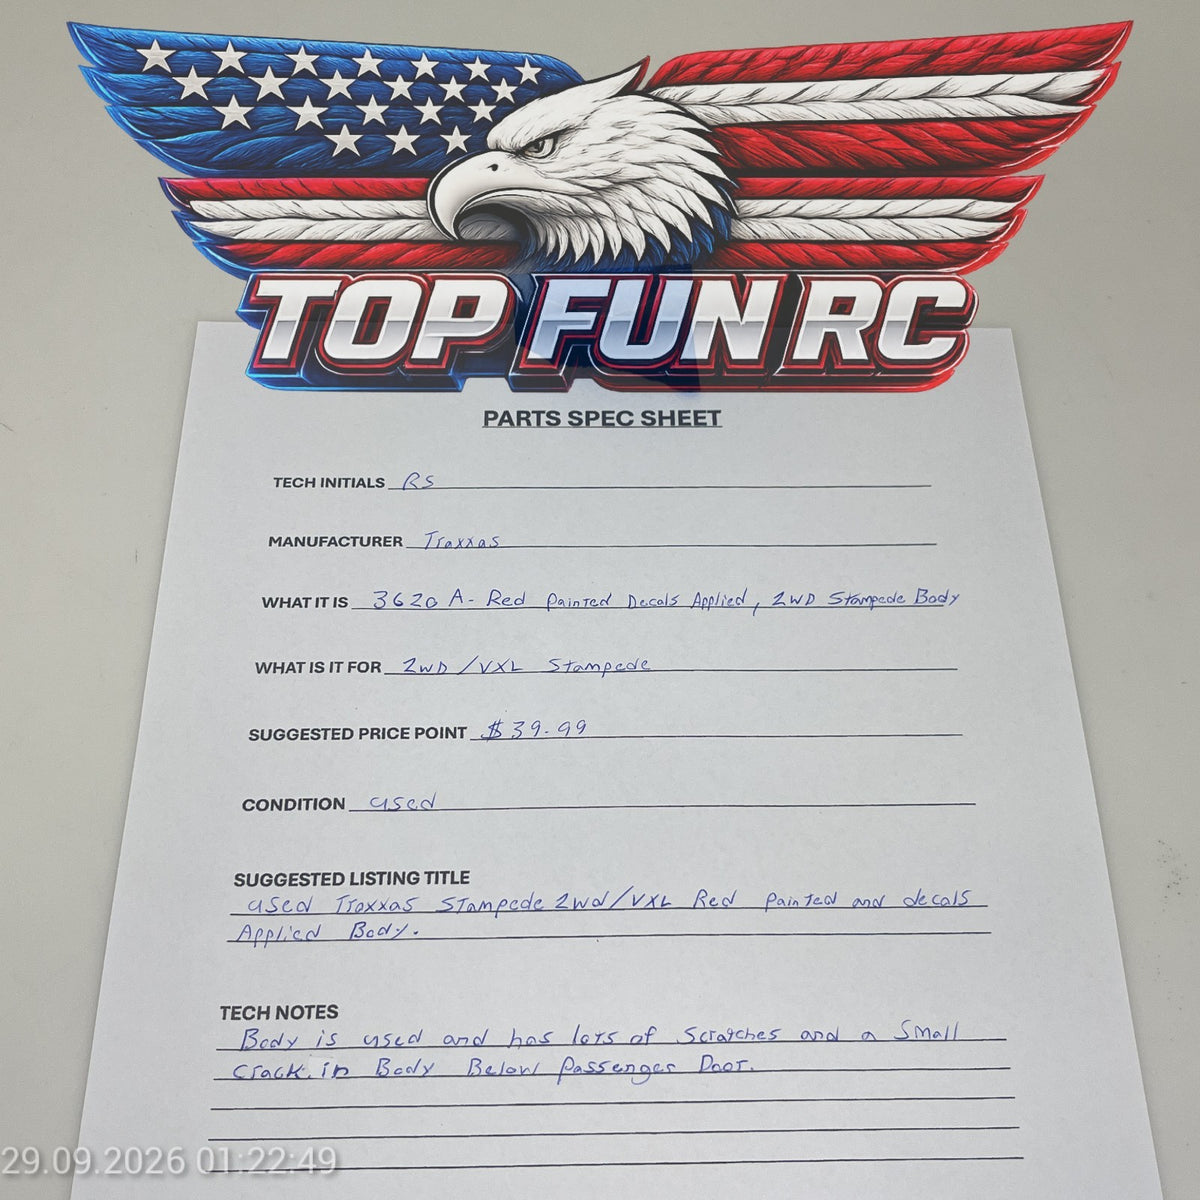 TOP FUN RC
PARTS SPEC SHEET
TECH INITIALS RS
MANUFACTURER Traxxas
WHAT IT IS 3620A - Red Painted Decals Applied, 2WD Stampede Body
WHAT IS IT FOR 2WD/VXL Stampede
SUGGESTED PRICE POINT $39.99
CONDITION used
SUGGESTED LISTING TITLE
used Traxxas Stampede 2wd/VXL Red painted and decals
Applied Body.
TECH NOTES
Body is used and has lots of scratches and a small
crack in Body Below Passenger Door.
29.09.2026 01:22:49